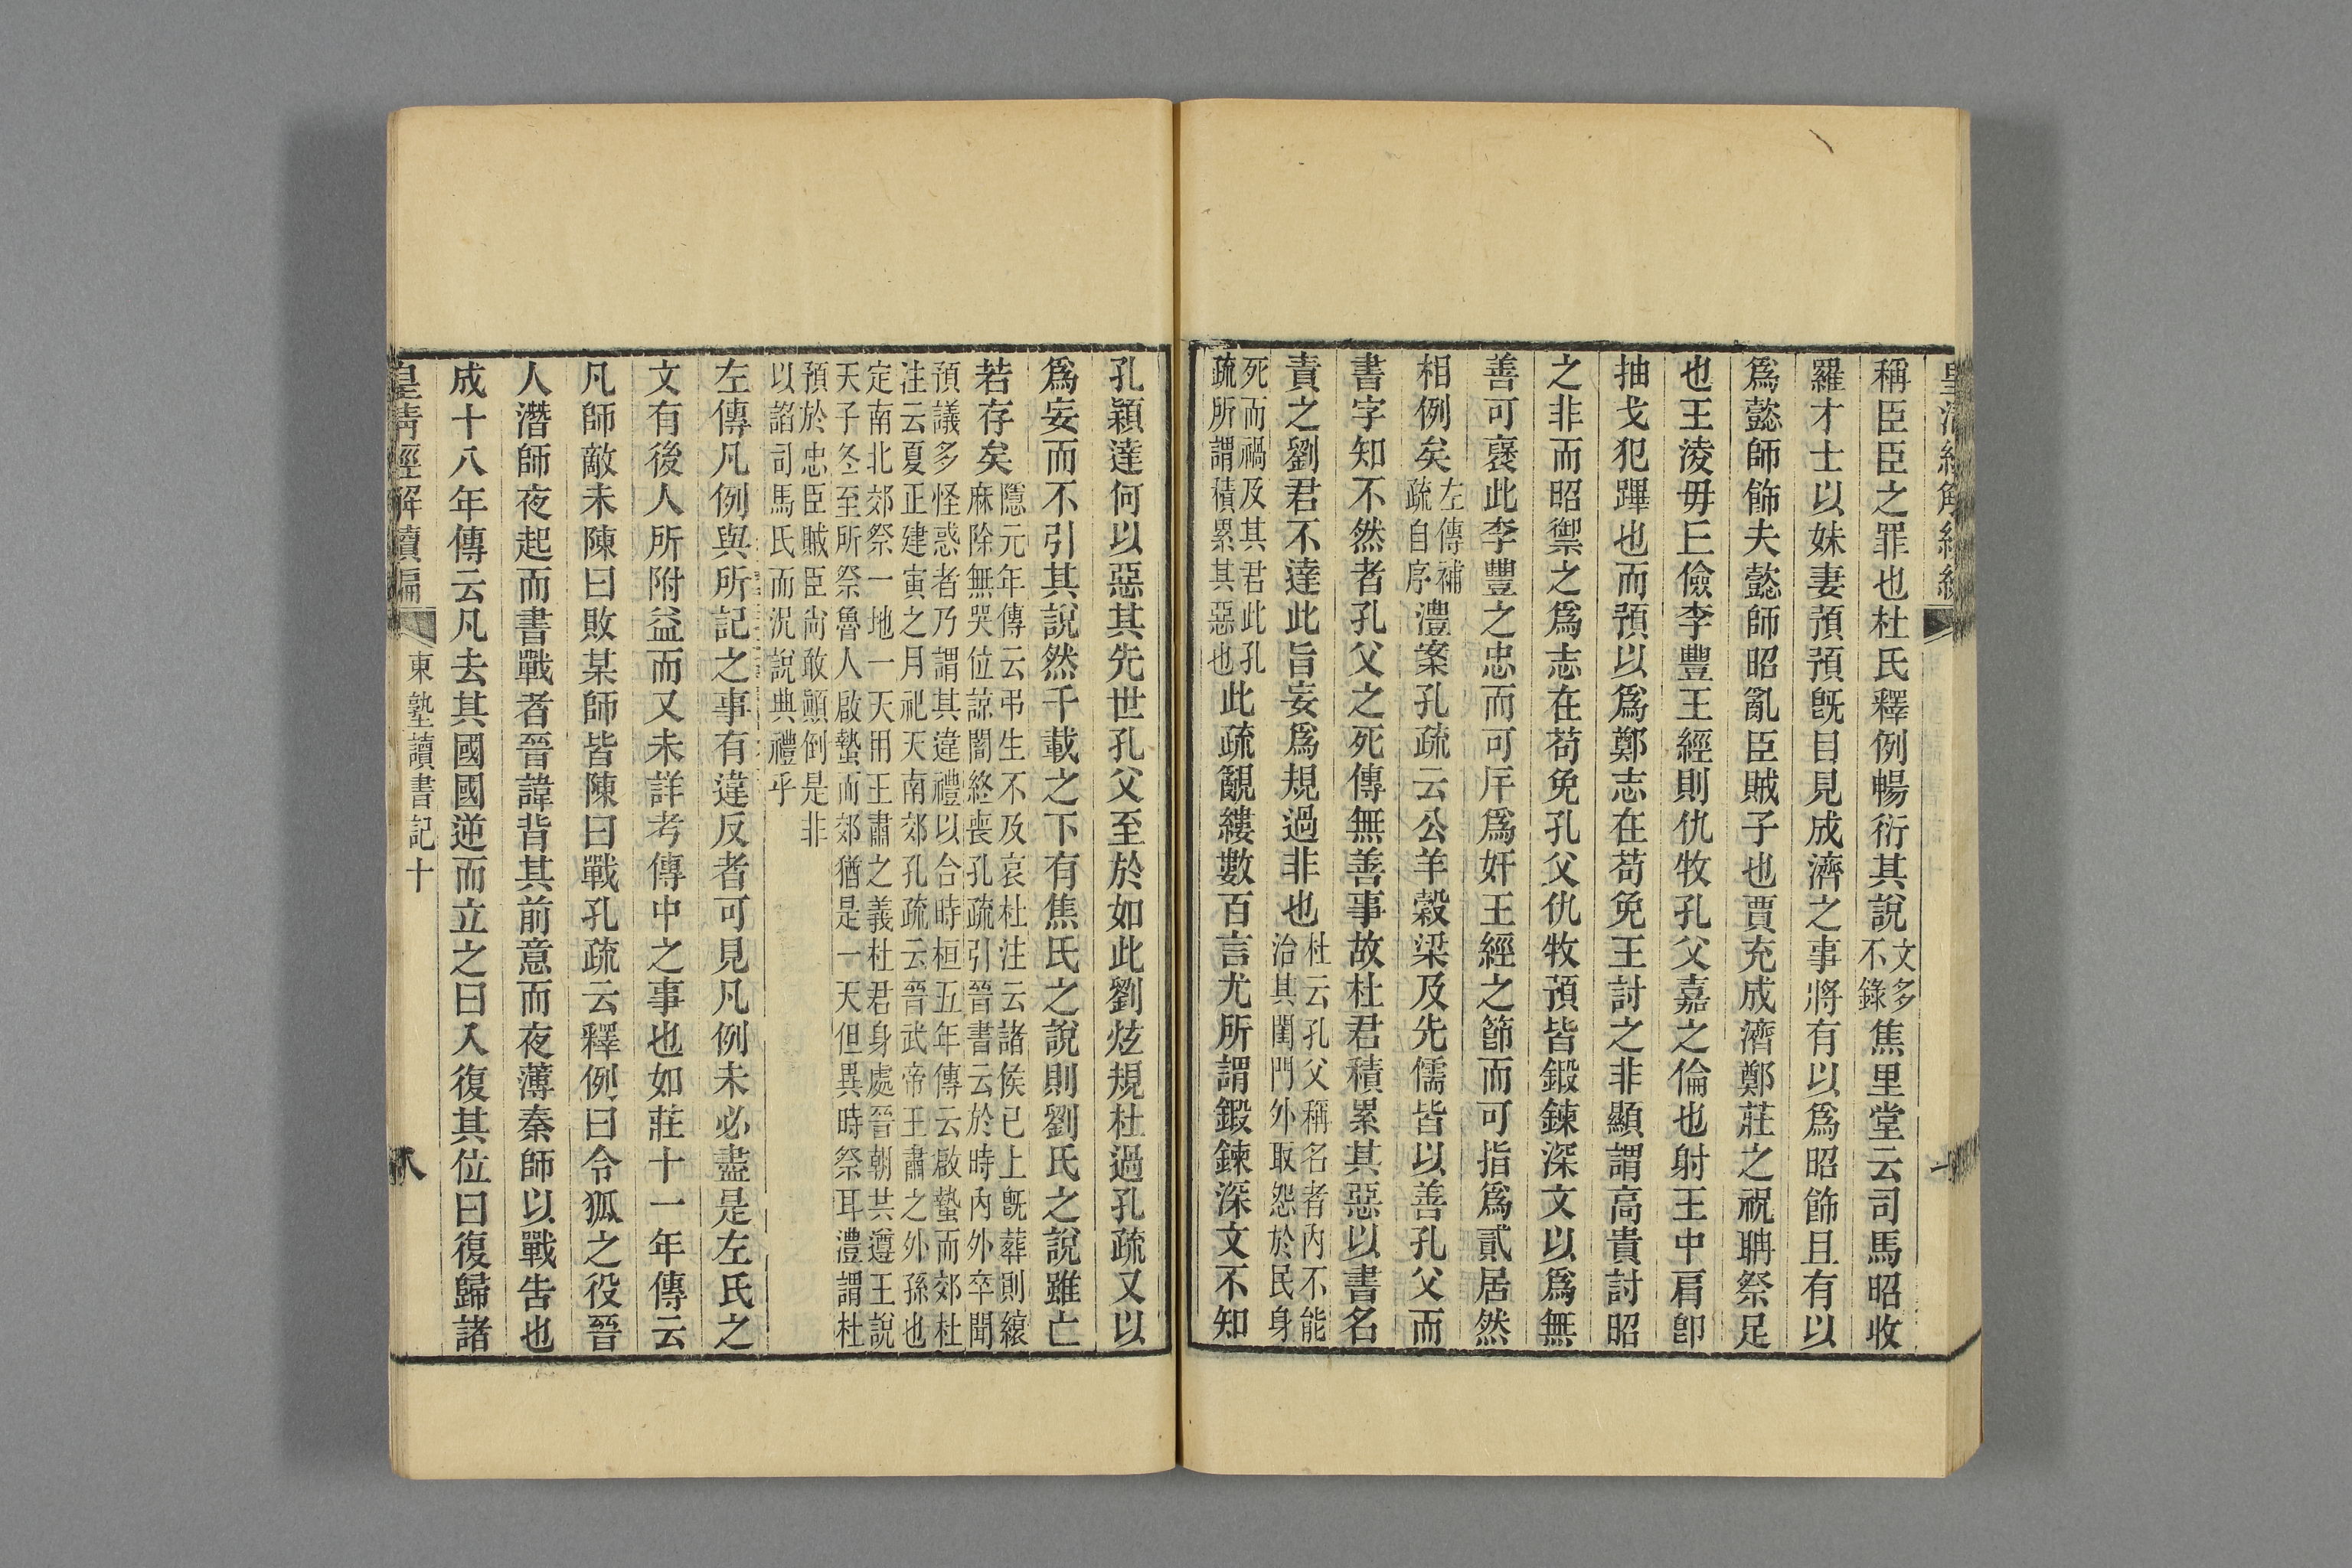 稱臣臣之罪也杜氏釋例暢衍其說文多不錄焦里堂云司馬昭收
羅才士以妹妻預預旣目見成濟之事將有以爲昭飾且有以
爲懿師飾夫懿師昭亂臣賊子也賈充成濟鄭莊之祝聃祭足
也王淩毋丘儉李豐王經則仇牧孔父嘉之倫也射王中肩卽
抽戈犯蹕也而預以爲鄭志在苟免王討之非顯謂高貴討昭
之非而昭禦之爲志在苟免孔父仇牧預皆鍛鍊深文以爲無
善可襃此李豐之忠而可斥爲奸王經之節而可指爲貳居然
相例矣左傳補疏自序澧案孔疏云公羊穀梁及先儒皆以善孔父而
書字知不然者孔父之死傳無善事故杜君積累其惡以書名
責之劉君不達此旨妄爲規過非也杜云孔父稱名者內不能治其閨門外取怨於民身
死而禍及其君此孔疏所謂積累其惡也此疏覶縷數百言尤所謂鍛鍊深文不知
孔穎達何以惡其先世孔父至於如此劉炫規杜過孔疏又以
爲妄而不引其說然千載之下有焦氏之說則劉氏之說雖亡
若存矣隱元年傳云弔生不及哀杜注云諸侯已上旣葬則縗麻除無哭位諒闇終喪孔疏引晉書云於時內外卒聞
預議多怪惑者乃謂其違禮以合時桓五年傳云啟蟄而郊杜注云夏正建寅之月祀天南郊孔疏云晉武帝王肅之外孫也
定南北郊祭一地一天用王肅之義杜君身處晉朝共遵王說天子冬至所祭魯人啟蟄而郊猶是一天但異時祭耳澧謂杜
預於忠臣賊臣尚敢顚倒是非以諂司馬氏而況說典禮乎
左傳凡例與所記之事有違反者可見凡例未必盡是左氏之
文有後人所附益而又未詳考傳中之事也如莊十一年傳云
凡師敵未陳曰敗某師皆陳曰戰孔疏云釋例曰令狐之役晉
人潛師夜起而書戰者晉諱背其前意而夜薄秦師以戰告也
成十八年傳云凡去其國國逆而立之曰入復其位曰復歸諸
皇清經解續編 東塾讀書記十 八